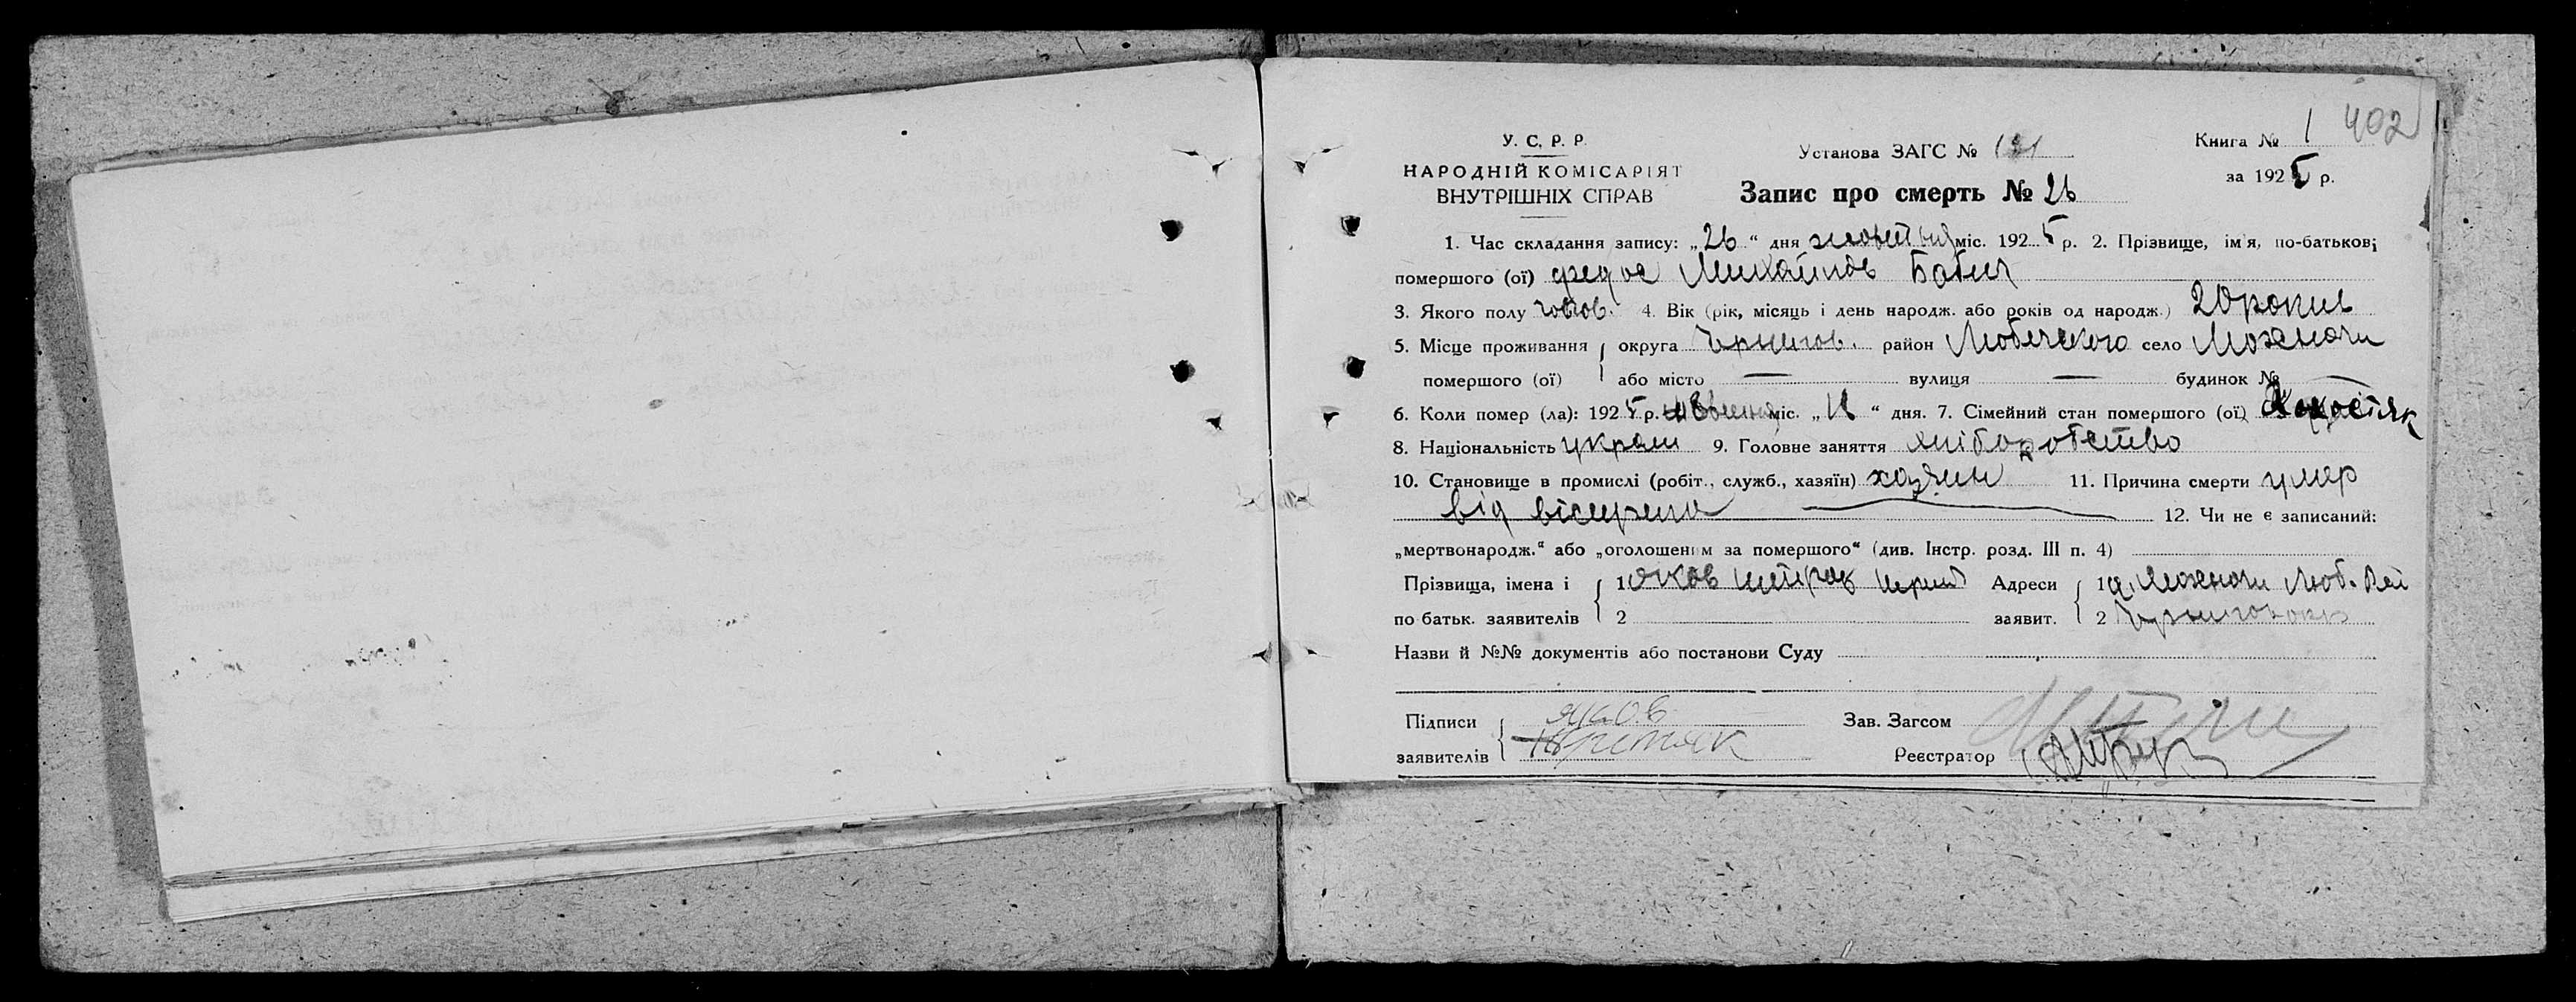 402
У. С. Р. Р.
НАРОДНІЙ КОМІСАРІЯТ
ВНУТРІШНІХ СПРАВ
Установа ЗАГС №
Книга № 1
за 1925 р.
Запис про смерть № 26
1. Час складання запису: „26“ дня жовтня міс. 1925 р. 2. Прізвище, ім'я, по-батькові
помершого (ої) Федос Михайлов Бабич
3. Якого полу 4. Вік (рік, місяць і день народж. або років од народж.) 20 рокив
5. Місце проживання округа Чернигов. район Любечского село Моженачи
помершого (ої) або місто — вулиця — будинок № —
6. Коли помер (ла): 1925 р. міс. „ “ дня. 7. Сімейний стан помершого (ої)
8. Національність украин 9. Головне заняття хліборобство
10. Становище в промислі (робіт., служб., хазяїн) хазяин 11. Причина смерти умер
від 12. Чи не є записаний:
„мертвонародж.“ або „оголошеним за помершого“ (див. Інстр. розд. III п. 4)
Прізвища, імена і 1 Яков Адреси 1 Моженачи Люб.
по батьк. заявителів 2 заявит. 2
Назви й №№ документів або постанови Суду
Підписи Яков Зав. Загсом
заявителів Реєстратор